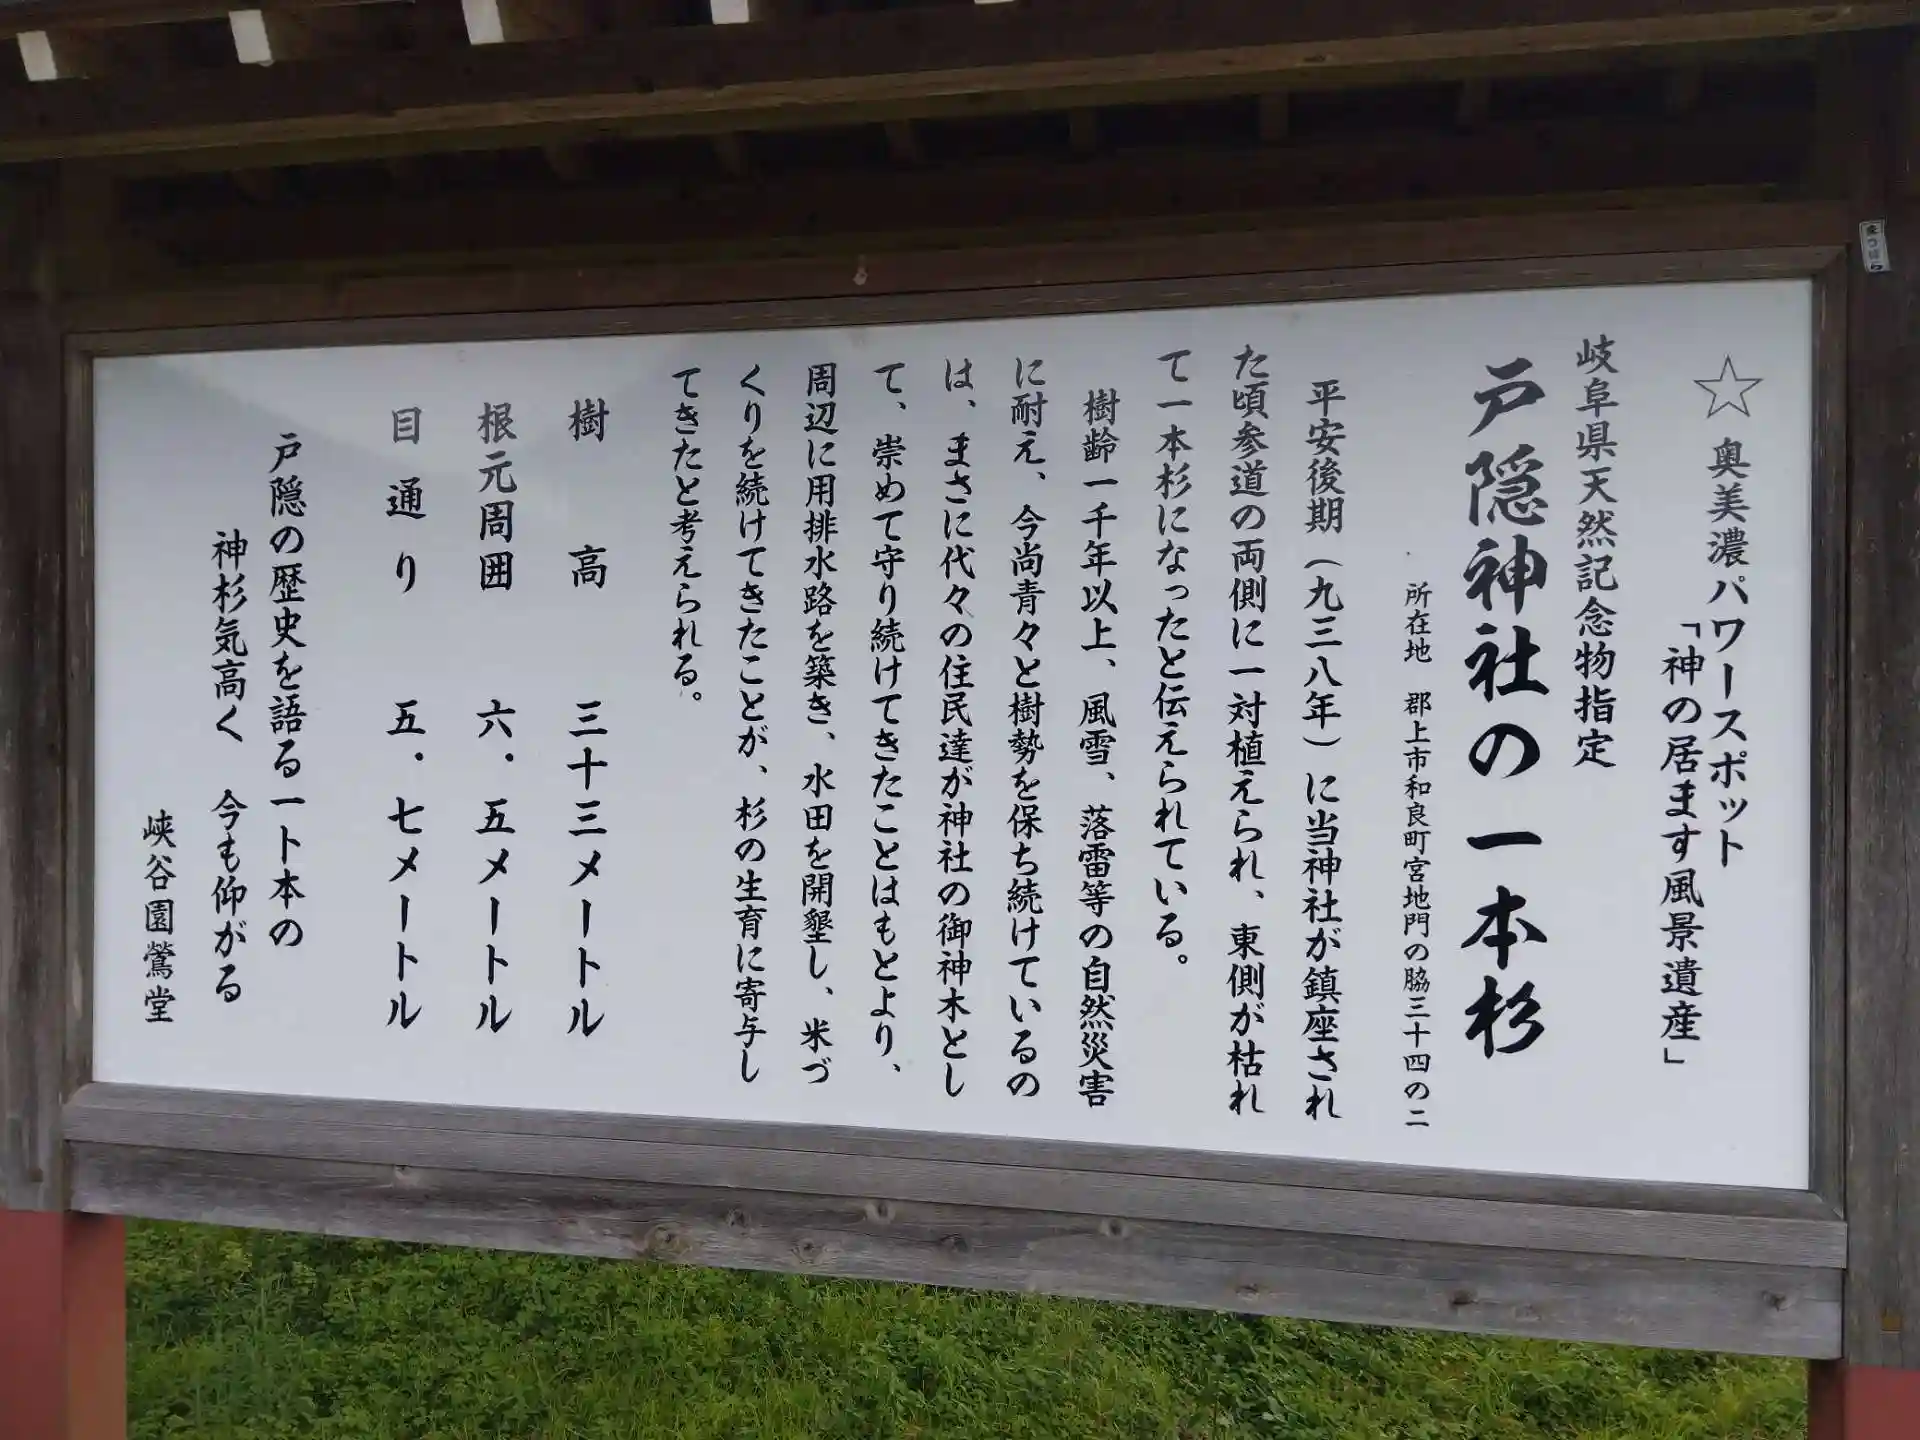 ☆奥美濃パワースポット
「神の居ます風景遺産」
岐阜県天然記念物指定
戸隠神社の一本杉
所在地　郡上市和良町宮地門の脇三十四の二
平安後期（九三八年）に当神社が鎮座され
た頃参道の両側に一対植えられ、東側が枯れ
て一本杉になったと伝えられている。
樹齢一千年以上、風雪、落雷等の自然災害
に耐え、今尚青々と樹勢を保ち続けているの
は、まさに代々の住民達が神社の御神木とし
て、崇めて守り続けてきたことはもとより、
周辺に用排水路を築き、水田を開墾し、米づ
くりを続けてきたことが、杉の生育に寄与し
てきたと考えられる。
樹高　三十三メートル
根元周囲　六．五メートル
目通り　五．七メートル
戸隠の歴史を語る一ト本の
神杉気高く　今も仰がる
峡谷園鶯堂
まつばら